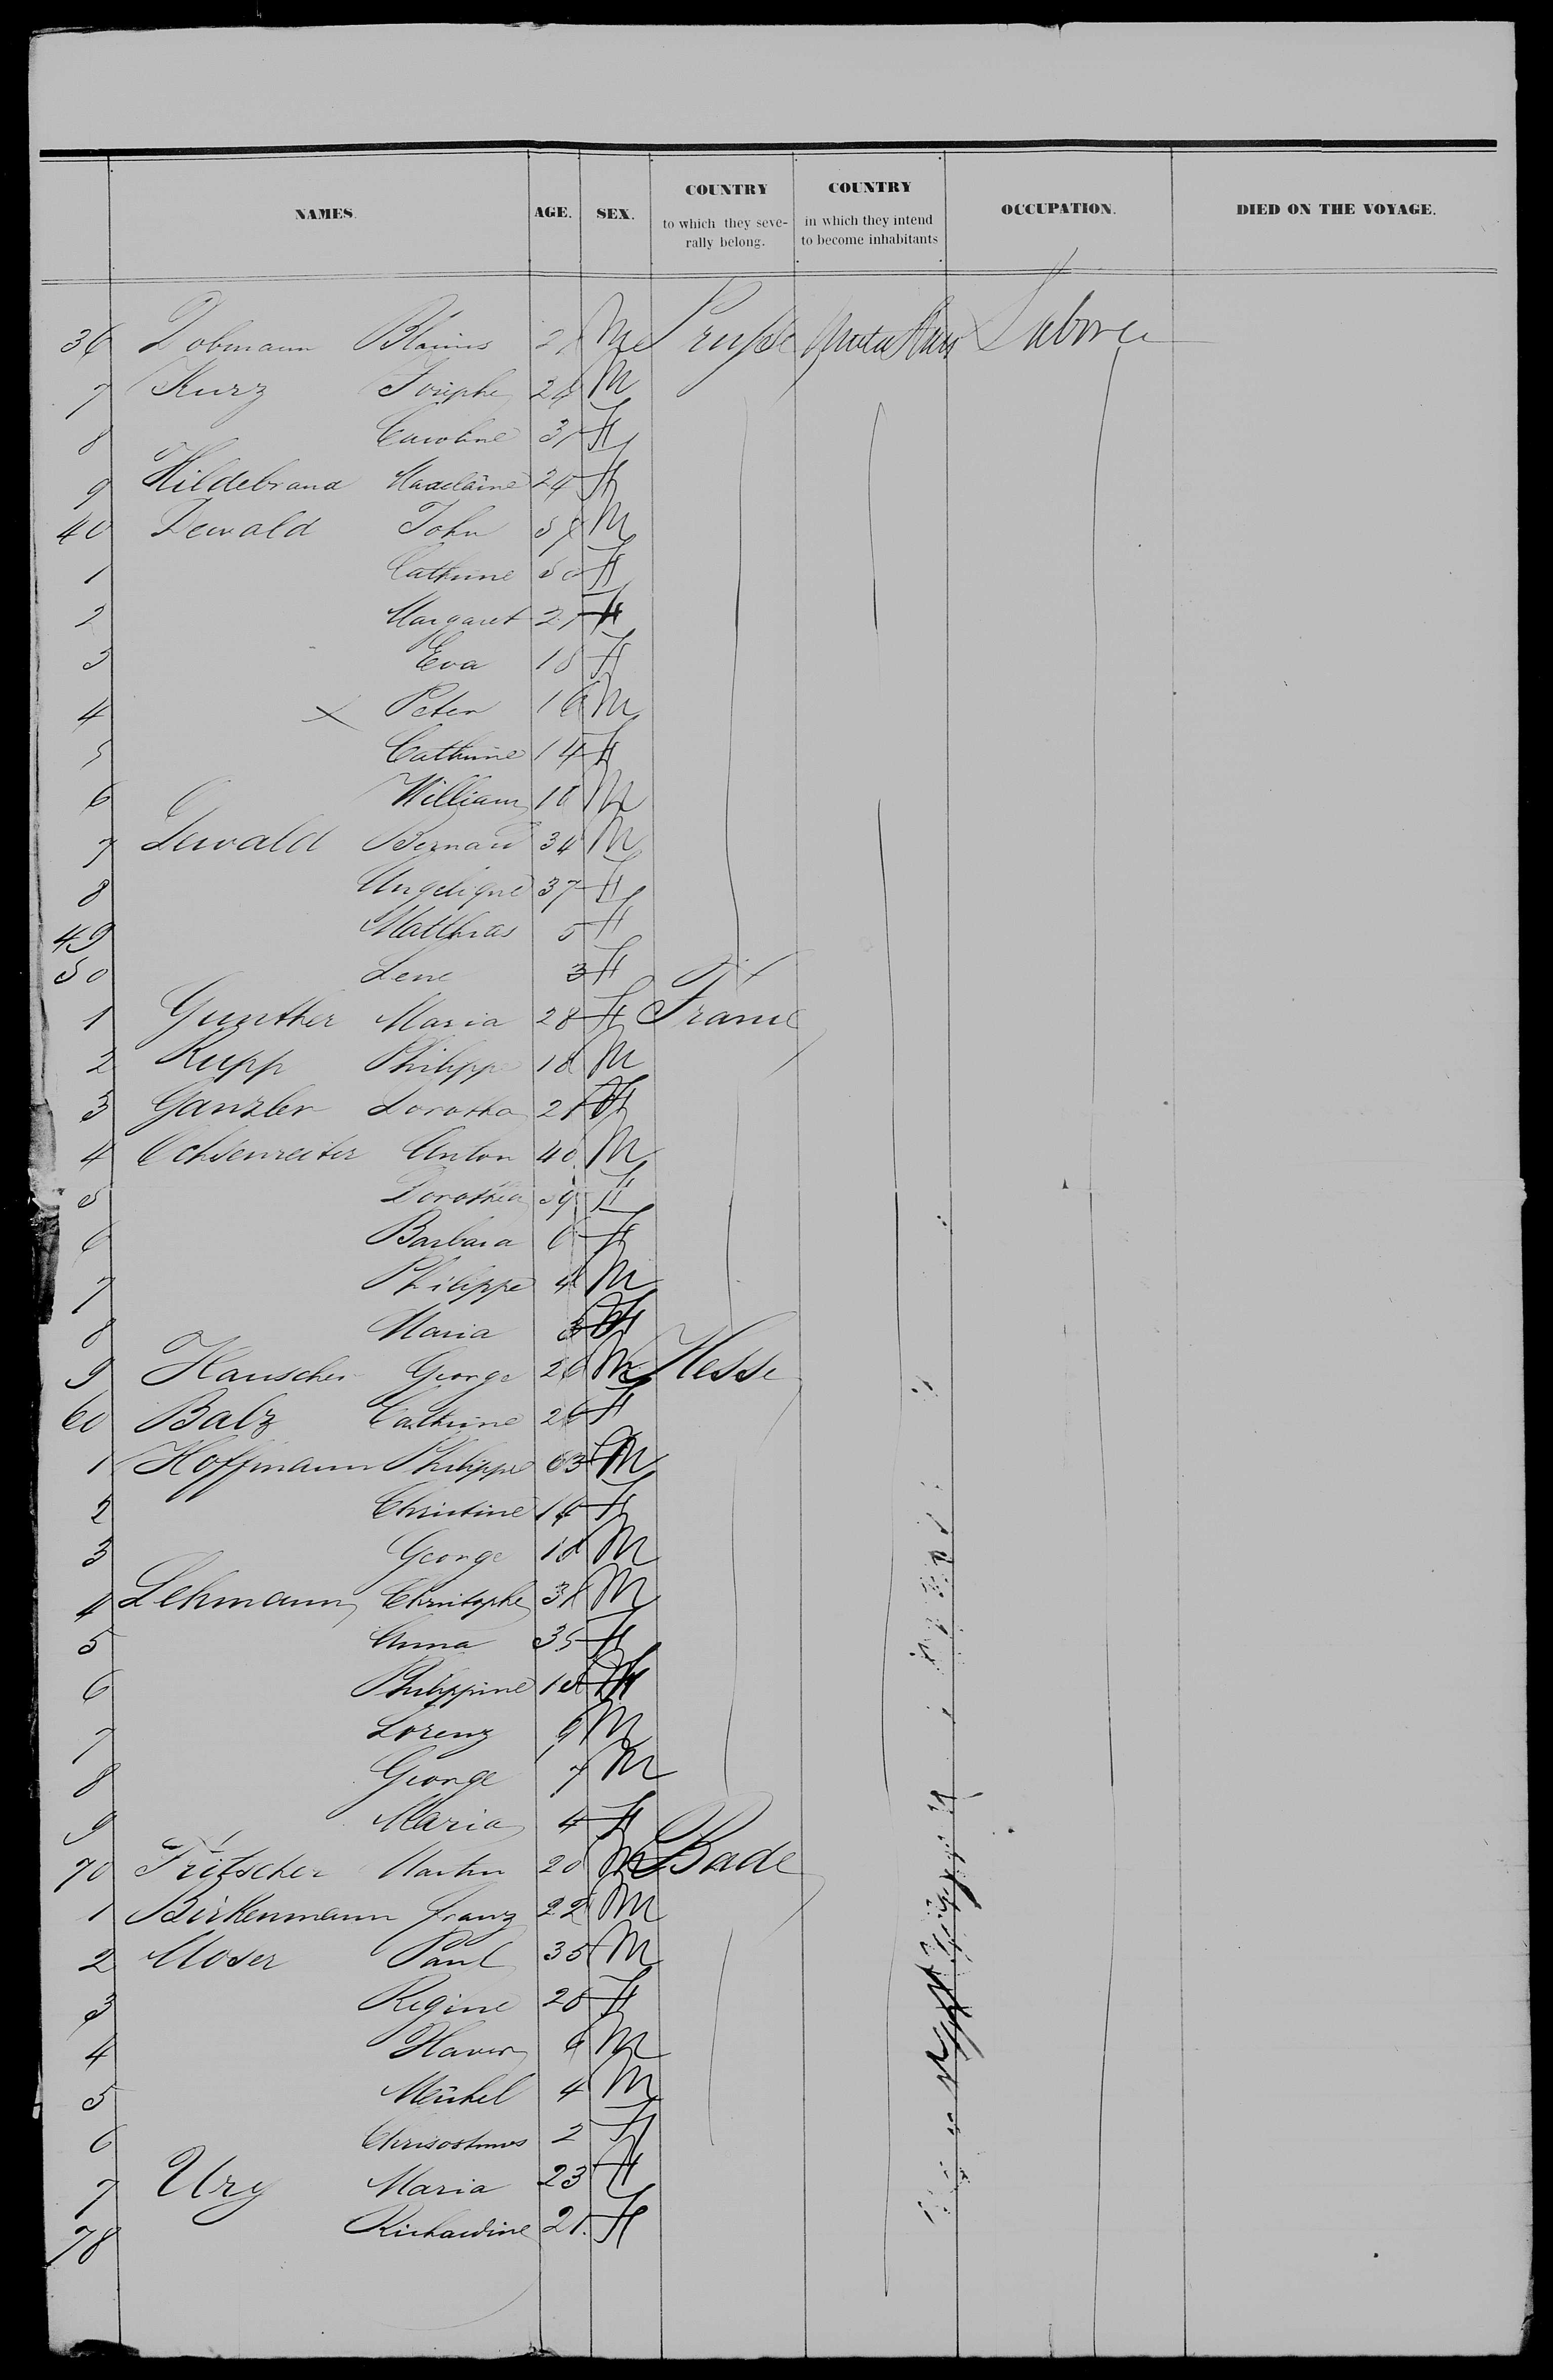 NAMES. AGE. SEX. COUNTRY to which they seve- rally belong. COUNTRY in which they intend to become inhabitants OCCUPATION. DIED ON THE VOYAGE.
36 Dobmann M Prusse Laborer
7 Kurz Josephe 24 M
8 Caroline 31 F
9 Hildebrand Madelaine 24 F
40 Dewald John M
1 Cathrine 50 F
2 Margaret 21 F
3 Eva 18 F
4 x Peter 16 M
5 Cathrine 14 F
6 William M
7 Dewald Bernard 34 M
8 Angelique 37 F
49 Matthias 5 F
50 Lene 3 F
1 Gunther Maria 28 F France
2 Rupp Philippe 18 M
3 Ganzler Dorotha 21 F
4 Ochsenreiter Anton 40 M
5 Dorothea 39 F
6 Barbara 6 F
7 Philippe 4 M
8 Maria 3 F
9 Hauscher George 26 M Hesse
60 Balz Cathrine 26 F
1 Hoffmann Philippe 63 M
2 Christine 14 F
3 George 18 M
4 Lehmann Christophe 38 M
5 Anna 35 F
6 Philippine F
7 Lorenz 9 M
8 George 7 M
9 Maria 4 F
70 Fritscher Martin 20 M Bade
1 Birkenmann Franz 22 M
2 Moser Paul 35 M
3 Regine 28 F
4 Xaver 6 M
5 Michel 4 M
6 Chrisostimos 2 F
7 Ury Maria 23 F
78 Richardine 21. F